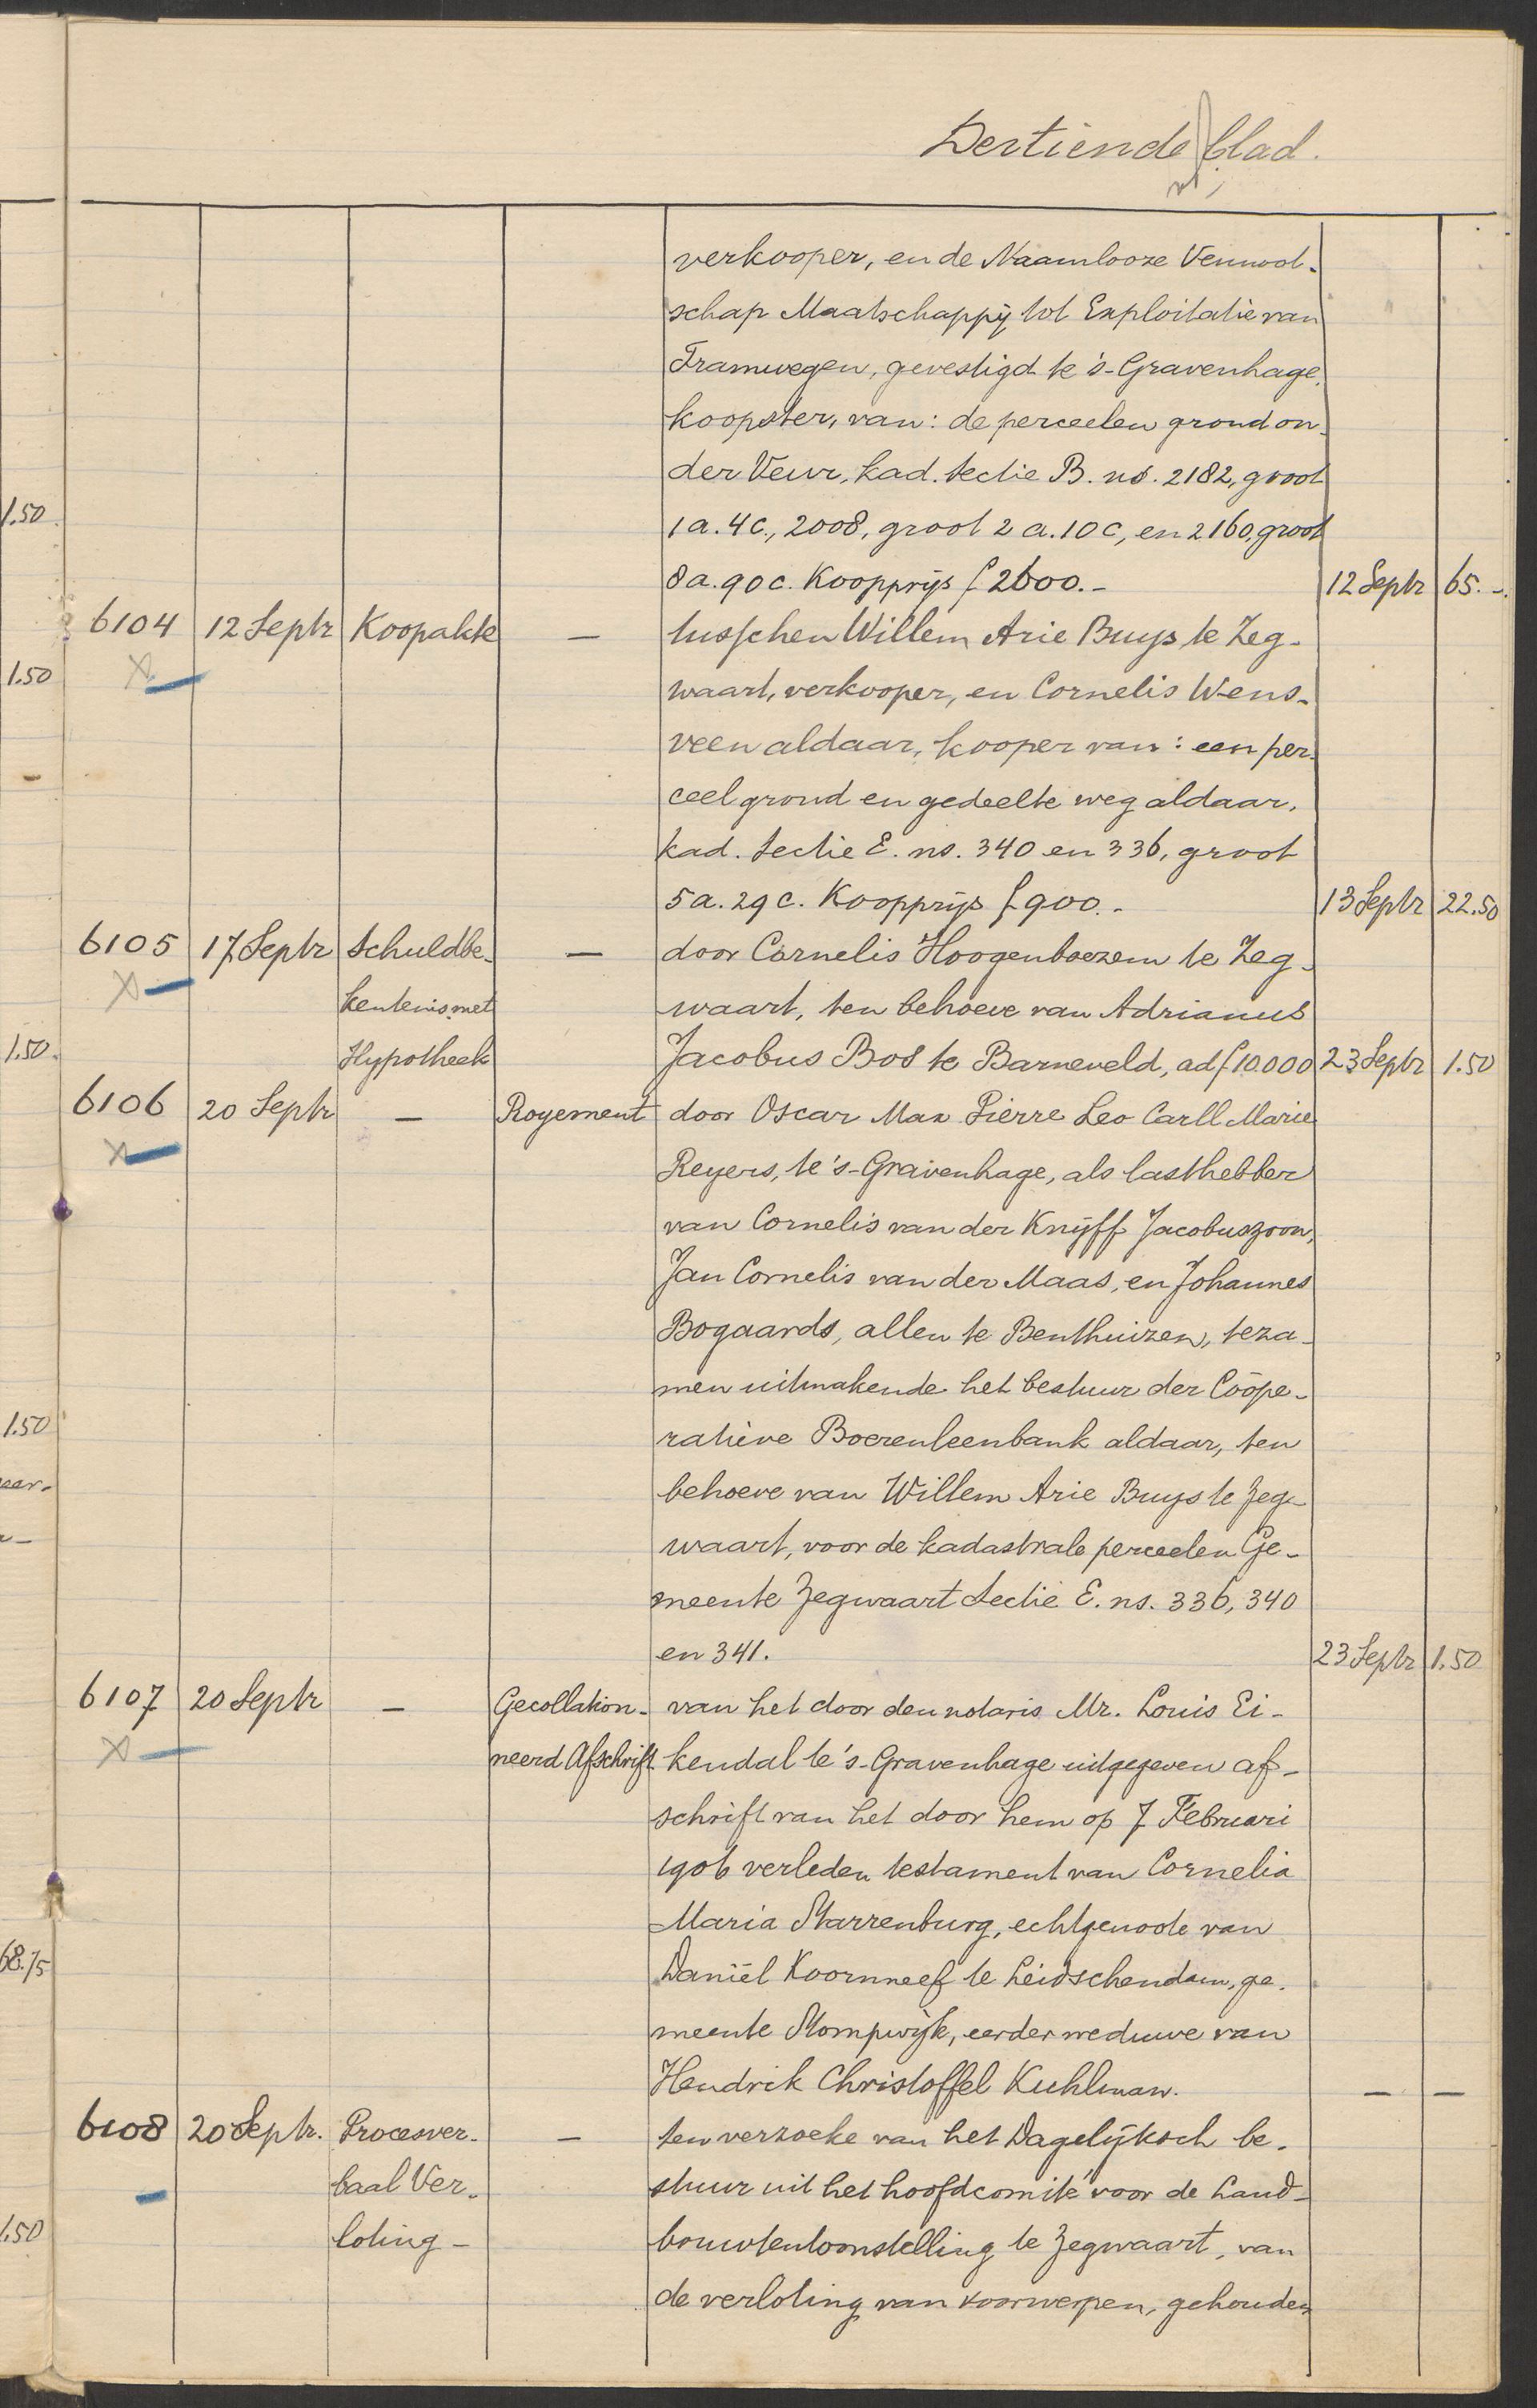 Dertiende blad.
verkooper, en de Naamlooze Vennoot-
schap Maatschappij tot Exploitatie van
Tramwegen, gevestigd te 's-Gravenhage,
koopster, van: de perceelen grond on-
der Veur, kad. sectie B. ns. 2182, groot
1.50
1 a. 4 c., 2008, groot 2 a. 10 c, en 2160, groot
8 a. 90 c. Koopprijs f 2600.- 12 Septr 65.-
6104 12 Septr Koopakte — tusschen Willem Arie Buys te Zeg-
1.50
waart, verkooper, en Cornelis Wens-
veen aldaar, kooper van: een per-
ceel grond en gedeelte weg aldaar,
kad. Sectie E. ns. 340 en 336, groot
5 a. 29 c. Koopprijs f 900.- 13 Septr 22.50
6105 17 Septr Schuldbe- — door Cornelis Hoogenboezem te Zeg-
kentenis met waart, ten behoeve van Adrianus
1.50. Hypotheek Jacobus Bos te Barneveld, ad f 10.000 23 Septr 1.50
6106 20 Septr — Royement door Oscar Max Pierre Leo Carll Marie
Reyers, te 's-Gravenhage, als lasthebber
van Cornelis van der Knijff Jacobuszoon,
Jan Cornelis van der Maas, en Johannes
Bogaards, allen te Benthuizen, teza-
men uitmakende het bestuur der Coöpe-
1.50
ratieve Boerenleenbank aldaar, ten
behoeve van Willem Arie Buys te Zeg-
waart, voor de kadastrale perceelen Ge-
meente Zegwaart Sectie E. ns. 336, 340
en 341. 23 Septr 1.50
6107 20 Septr — Gecollation- van het door den notaris Mr. Louis Ei-
neerd Afschrift kendal te 's-Gravenhage uitgegeven af-
schrift van het door hem op 7 Februari
1906 verleden testament van Cornelia
Maria Starrenburg, echtgenoote van
68.75
Daniël Koornneef te Leidschendam, ge-
meente Stompwijk, eerder weduwe van
Hendrik Christoffel Kuhlman. — —
6108 20 Septr. Procesver- — ten verzoeke van het Dagelijksch be-
baal Ver- stuur uit het hoofdcomité voor de Land-
1.50
loting - bouwtentoonstelling te Zegwaart, van
de verloting van voorwerpen, gehouden